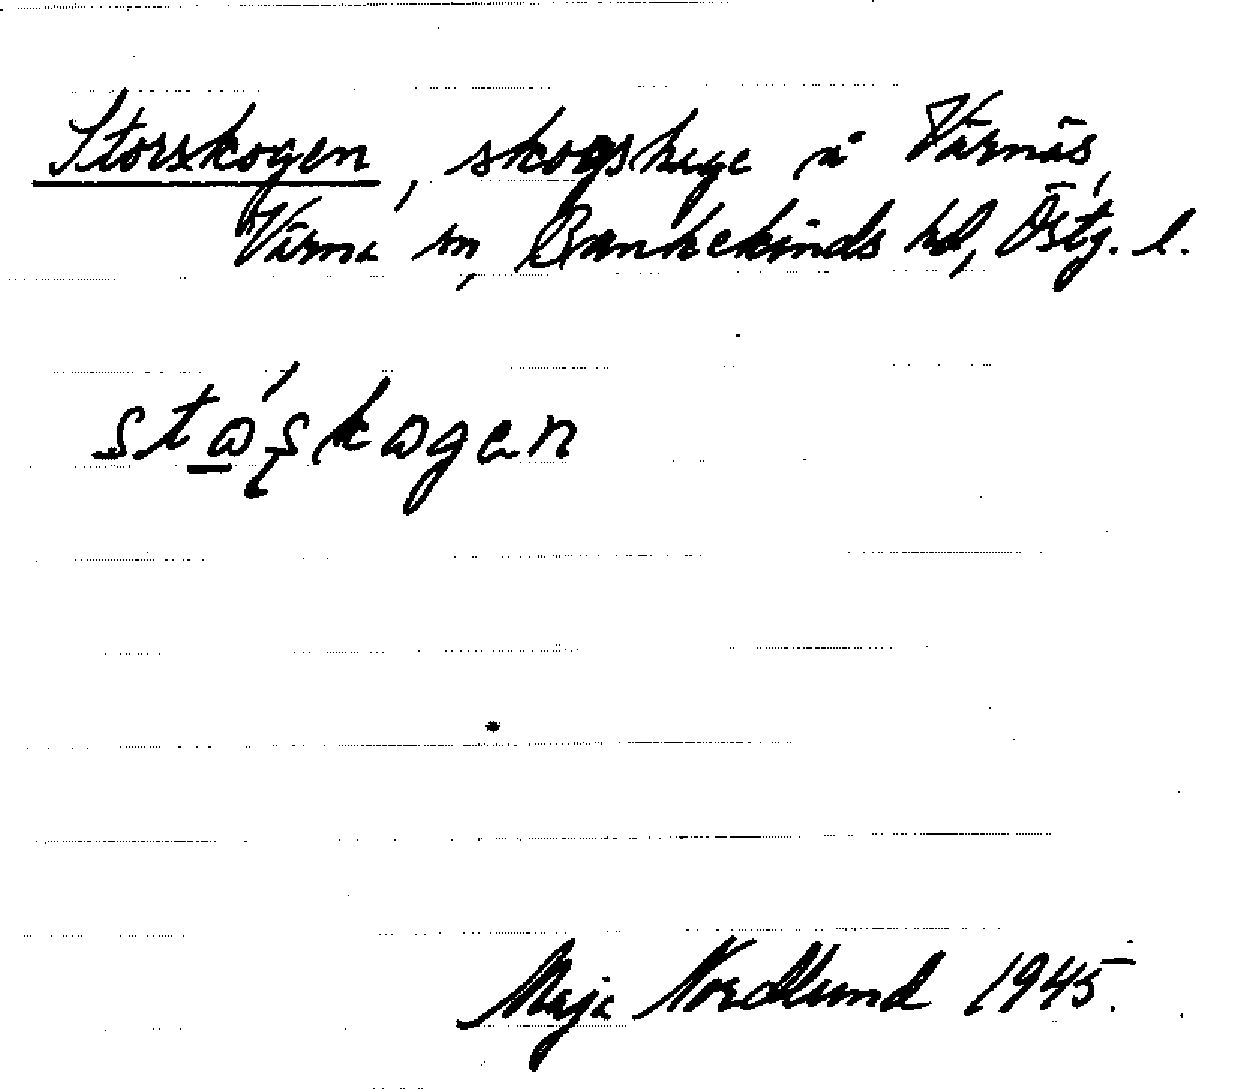 Storskogen, skogshage å Värnäs,
Värna sn, Bankekinds hd, Östg. l.
stω´ʂkωgen
Maja Nordlund 1945.